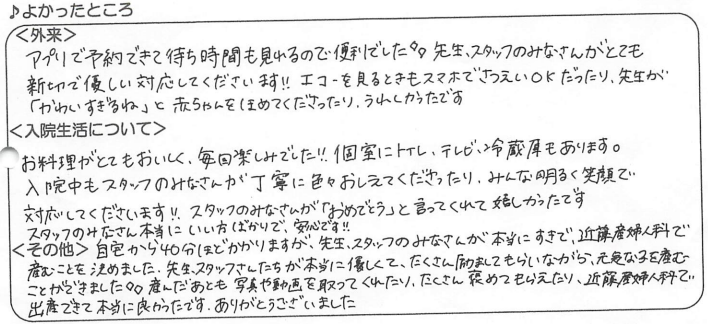 ♪よかったところ
<外来>
アプリで予約できて待ち時間も見れるので便利でした°° 先生、スタッフのみなさんがとても
親切で優しい対応してくださいます!! エコーを見るときもスマホでさつえいOKだったり、先生が
「かわいすぎるね」と赤ちゃんをほめてくださったり、うれしかったです
<入院生活について>
お料理がとてもおいしく、毎回楽しみでした!! 個室にトイレ、テレビ、冷蔵庫もあります。
入院中もスタッフのみなさんが丁寧に色々おしえてくださったり、みんな明るく笑顔で
対応してくださいます!! スタッフのみなさんが「おめでとう」と言ってくれて嬉しかったです
スタッフのみなさん本当にいい方ばかりで、安心です!!
<その他> 自宅から40分ほどかかりますが、先生、スタッフのみなさんが本当にすきで、近藤産婦人科で
産むことを決めました。先生、スタッフさんたちが本当に優しくて、たくさん励ましてもらいながら、元気な子を産む
ことができました°° 産んだあとも写真や動画を取ってくれたり、たくさん褒めてもらえたり、近藤産婦人科で
出産できて本当に良かったです。ありがとうございました